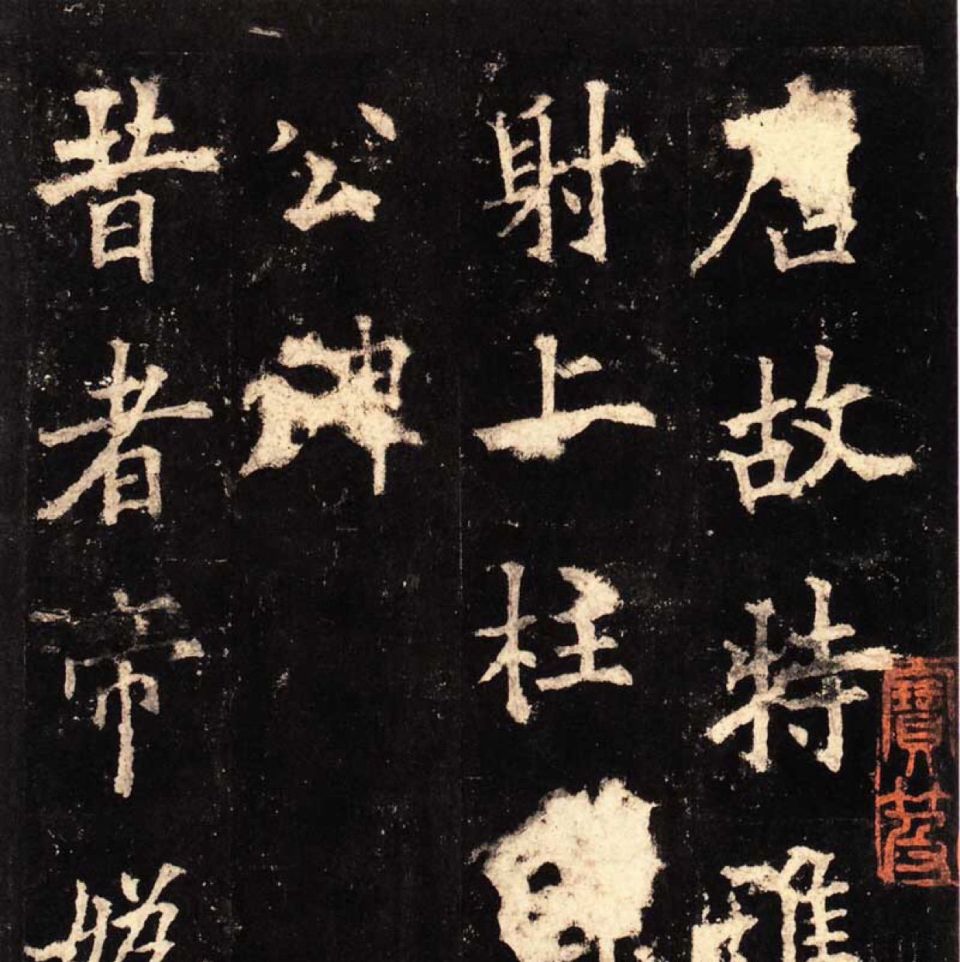 唐故特進
射上柱
公碑
昔者帝